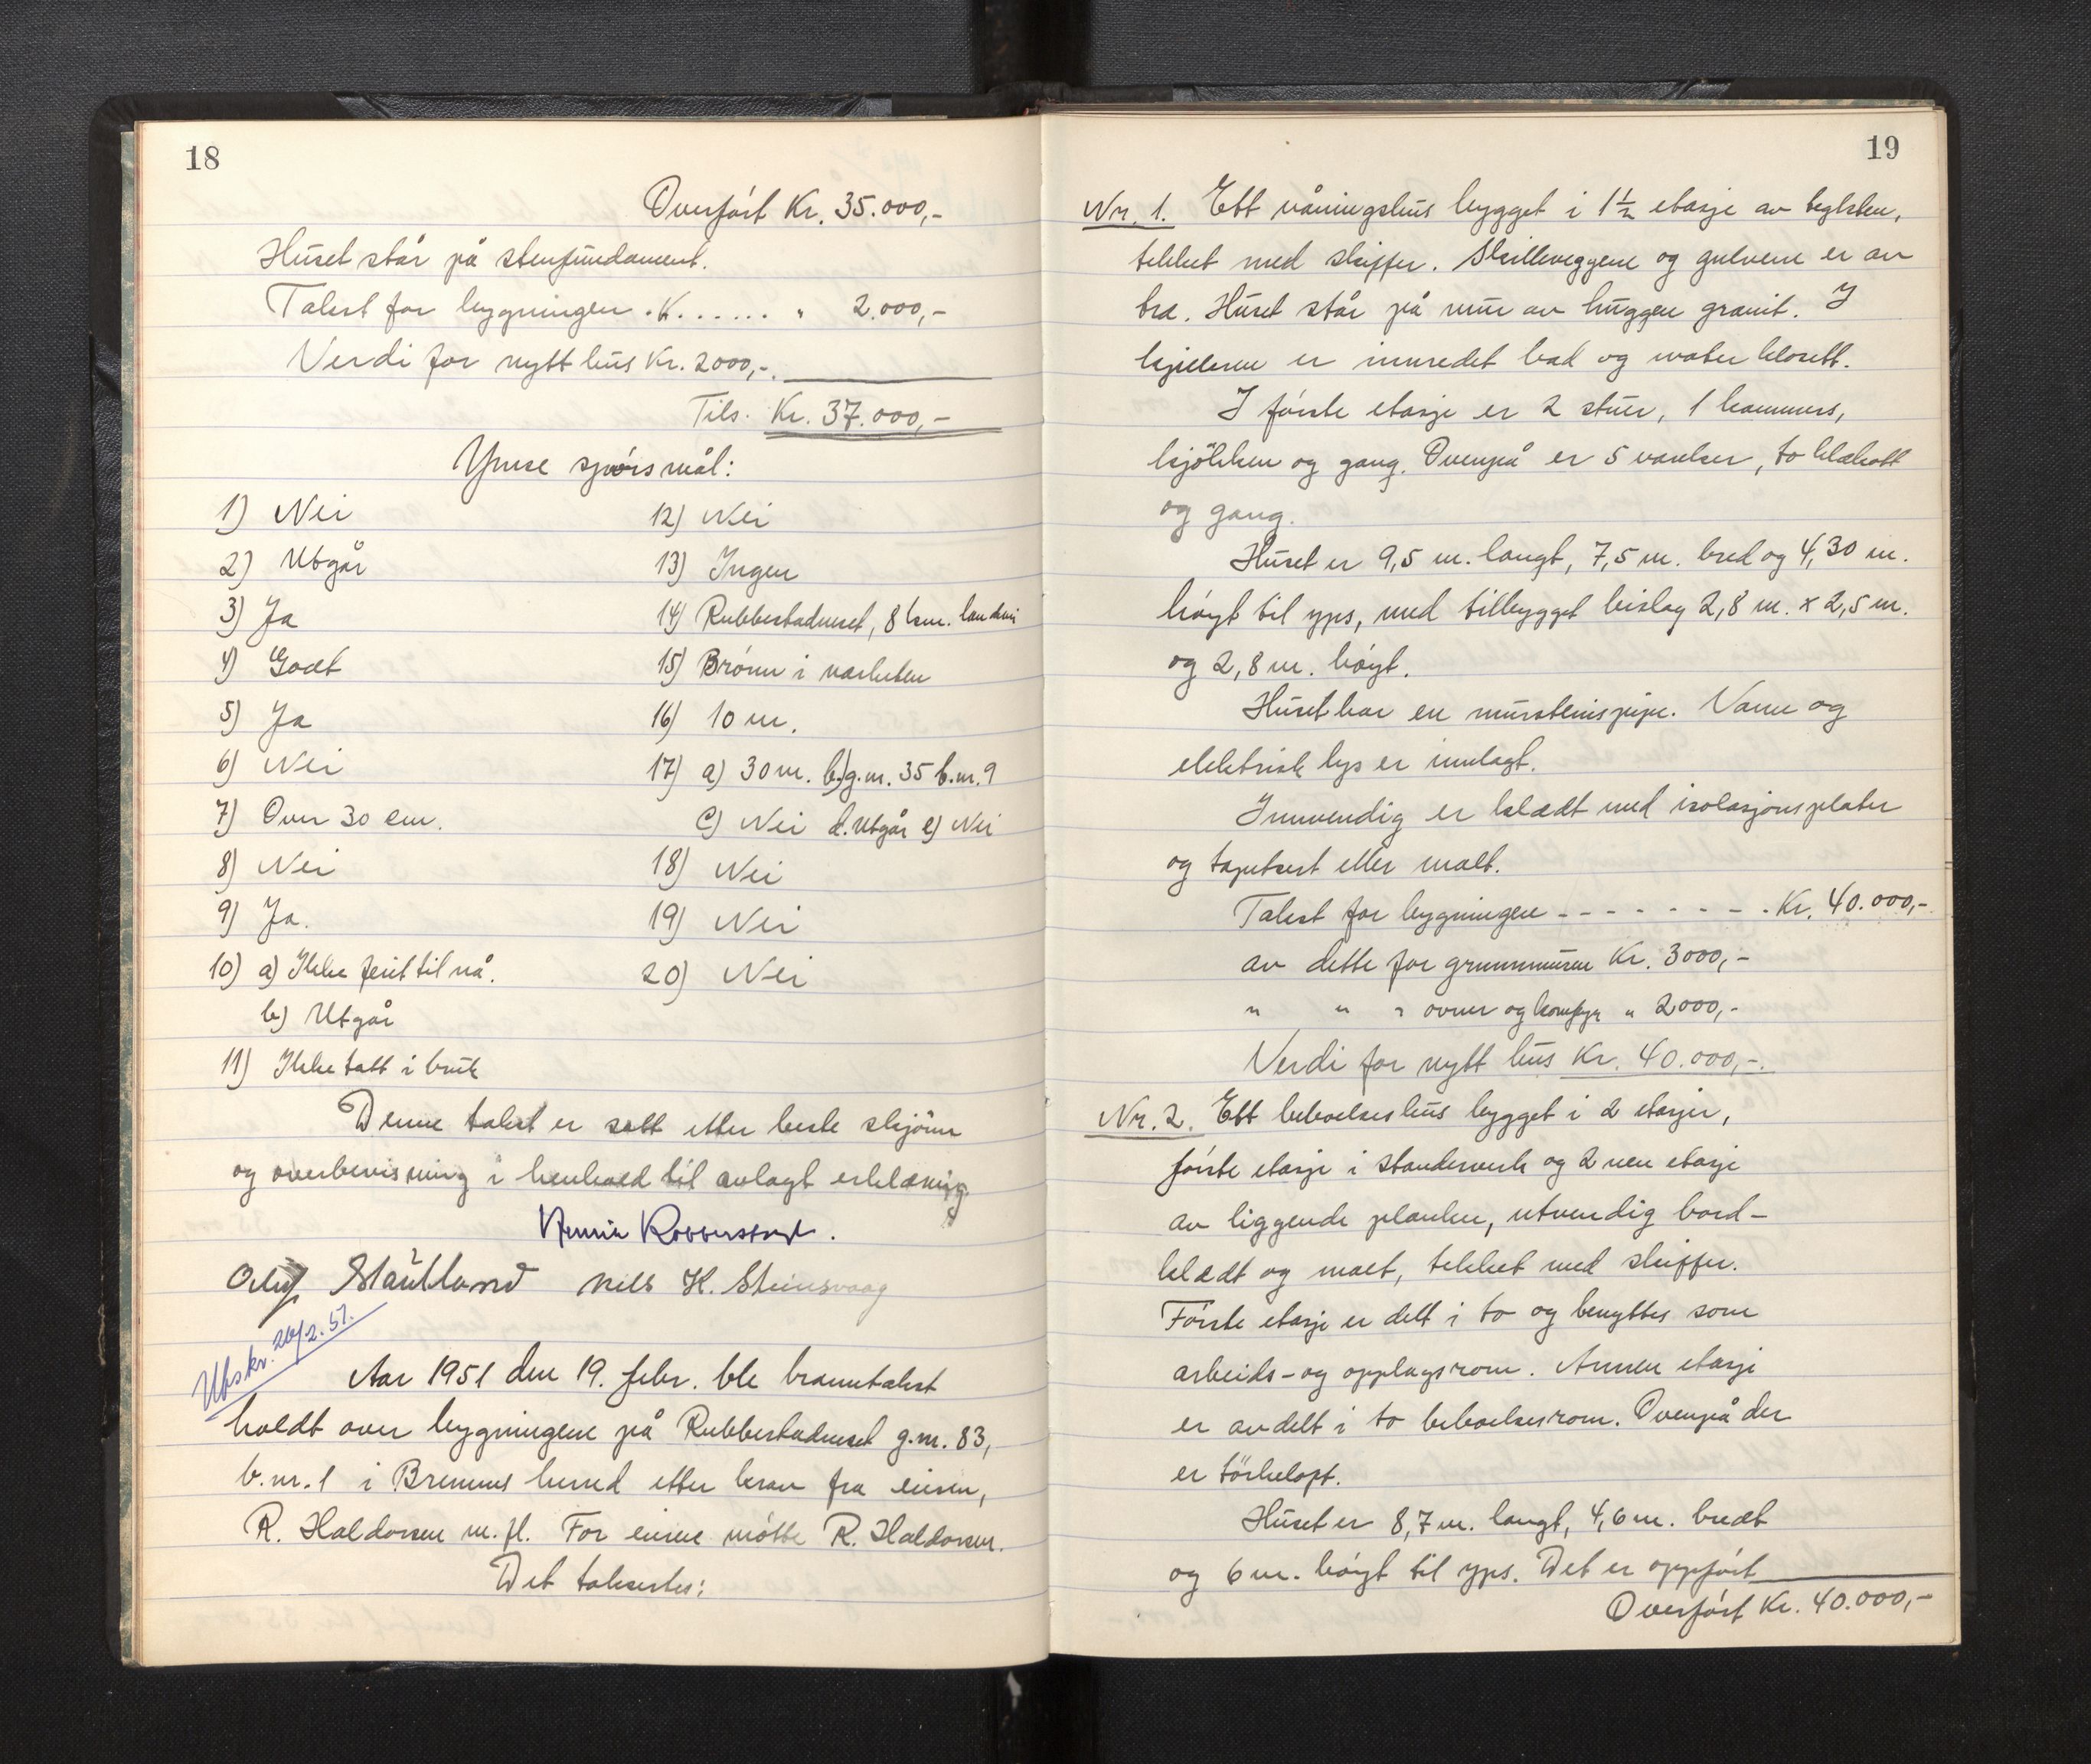 18
Overført Kr. 35.000,-
Huset står på stenfundament.
Takst for bygningen . K. . . . . . " 2.000,-
Verdi for nytt hus Kr. 2000,-.
Tils. Kr. 37.000,-
Ymse spørsmål:
1) Nei
2) Utgår
3) Ja
4) Godt
5) Ja
6) Nei
7) Over 30 cm.
8) Nei
9) Ja.
10) a) Ikke feiet til nå.
b) Utgår
11) Ikke tatt i bruk
12) Nei
13) Ingen
14) Rubbestadneset, 8 km.
15) Brønn i nærheten
16) 10 m.
17) a) 30 m. b) g.nr. 35 b.nr. 9
c) Nei d. Utgår e) Nei
18) Nei
19) Nei
20) Nei
Denne takst er satt etter beste skjönn
og overbevisning i henhold til avlagt erklæring.
Henrik Robberstad.
Oluf Stautland Nils H. Steinsvaag
Utskr. 26/2. 51.
Aar 1951 den 19. febr. ble branntakst
holdt over bygningene på Rubbestadneset g.nr. 83,
b.nr. 1 i Bremnes herred etter krav fra eieren,
R. Haldorsen m. fl. For eierne møtte R. Haldorsen.
Det takseres:
19
Nr. 1. Ett våningshus bygget i 1½ etasje av teglsten,
tekket med skiffer. Skilleveggene og gulvene er av
tre. Huset står på mur av huggen granit. I
kjelleren er innredet bad og water klosett.
I første etasje er 2 stuer, 1 kammers,
kjökken og gang. Ovenpå er 5 værelser, to klekott
og gang.
Huset er 9,5 m. langt, 7,5 m. bred og 4,30 m.
høyt til yps, med tilbygget bislag 2,8 m. x 2,5 m.
og 2,8 m. høyt.
Huset har en murstenspipe. Vann og
elektrisk lys er innlagt.
Innvendig er klædt med isolasjonsplater
og tapetsert eller malt.
Takst for bygningen - - - - - - - - . Kr. 40.000,-
av dette for grunnmuren Kr. 3000,-
" " " ovner og komfyr " 2000,-
Verdi for nytt hus Kr. 40.000,-.
Nr. 2. Ett beboelseshus bygget i 2 etasjer,
første etasje i standerverk og 2 nen etasje
av liggende planker, utvendig bord-
klædt og malt, tekket med skiffer.
Første etasje er delt i to og benyttes som
arbeids- og opplagsrom. Annen etasje
er avdelt i to beboelsesrom. Ovenpå der
er törkeloft.
Huset er 8,7 m. langt, 4,6 m. bredt
og 6 m. høyt til yps. Det er oppført
Overført Kr. 40.000,-